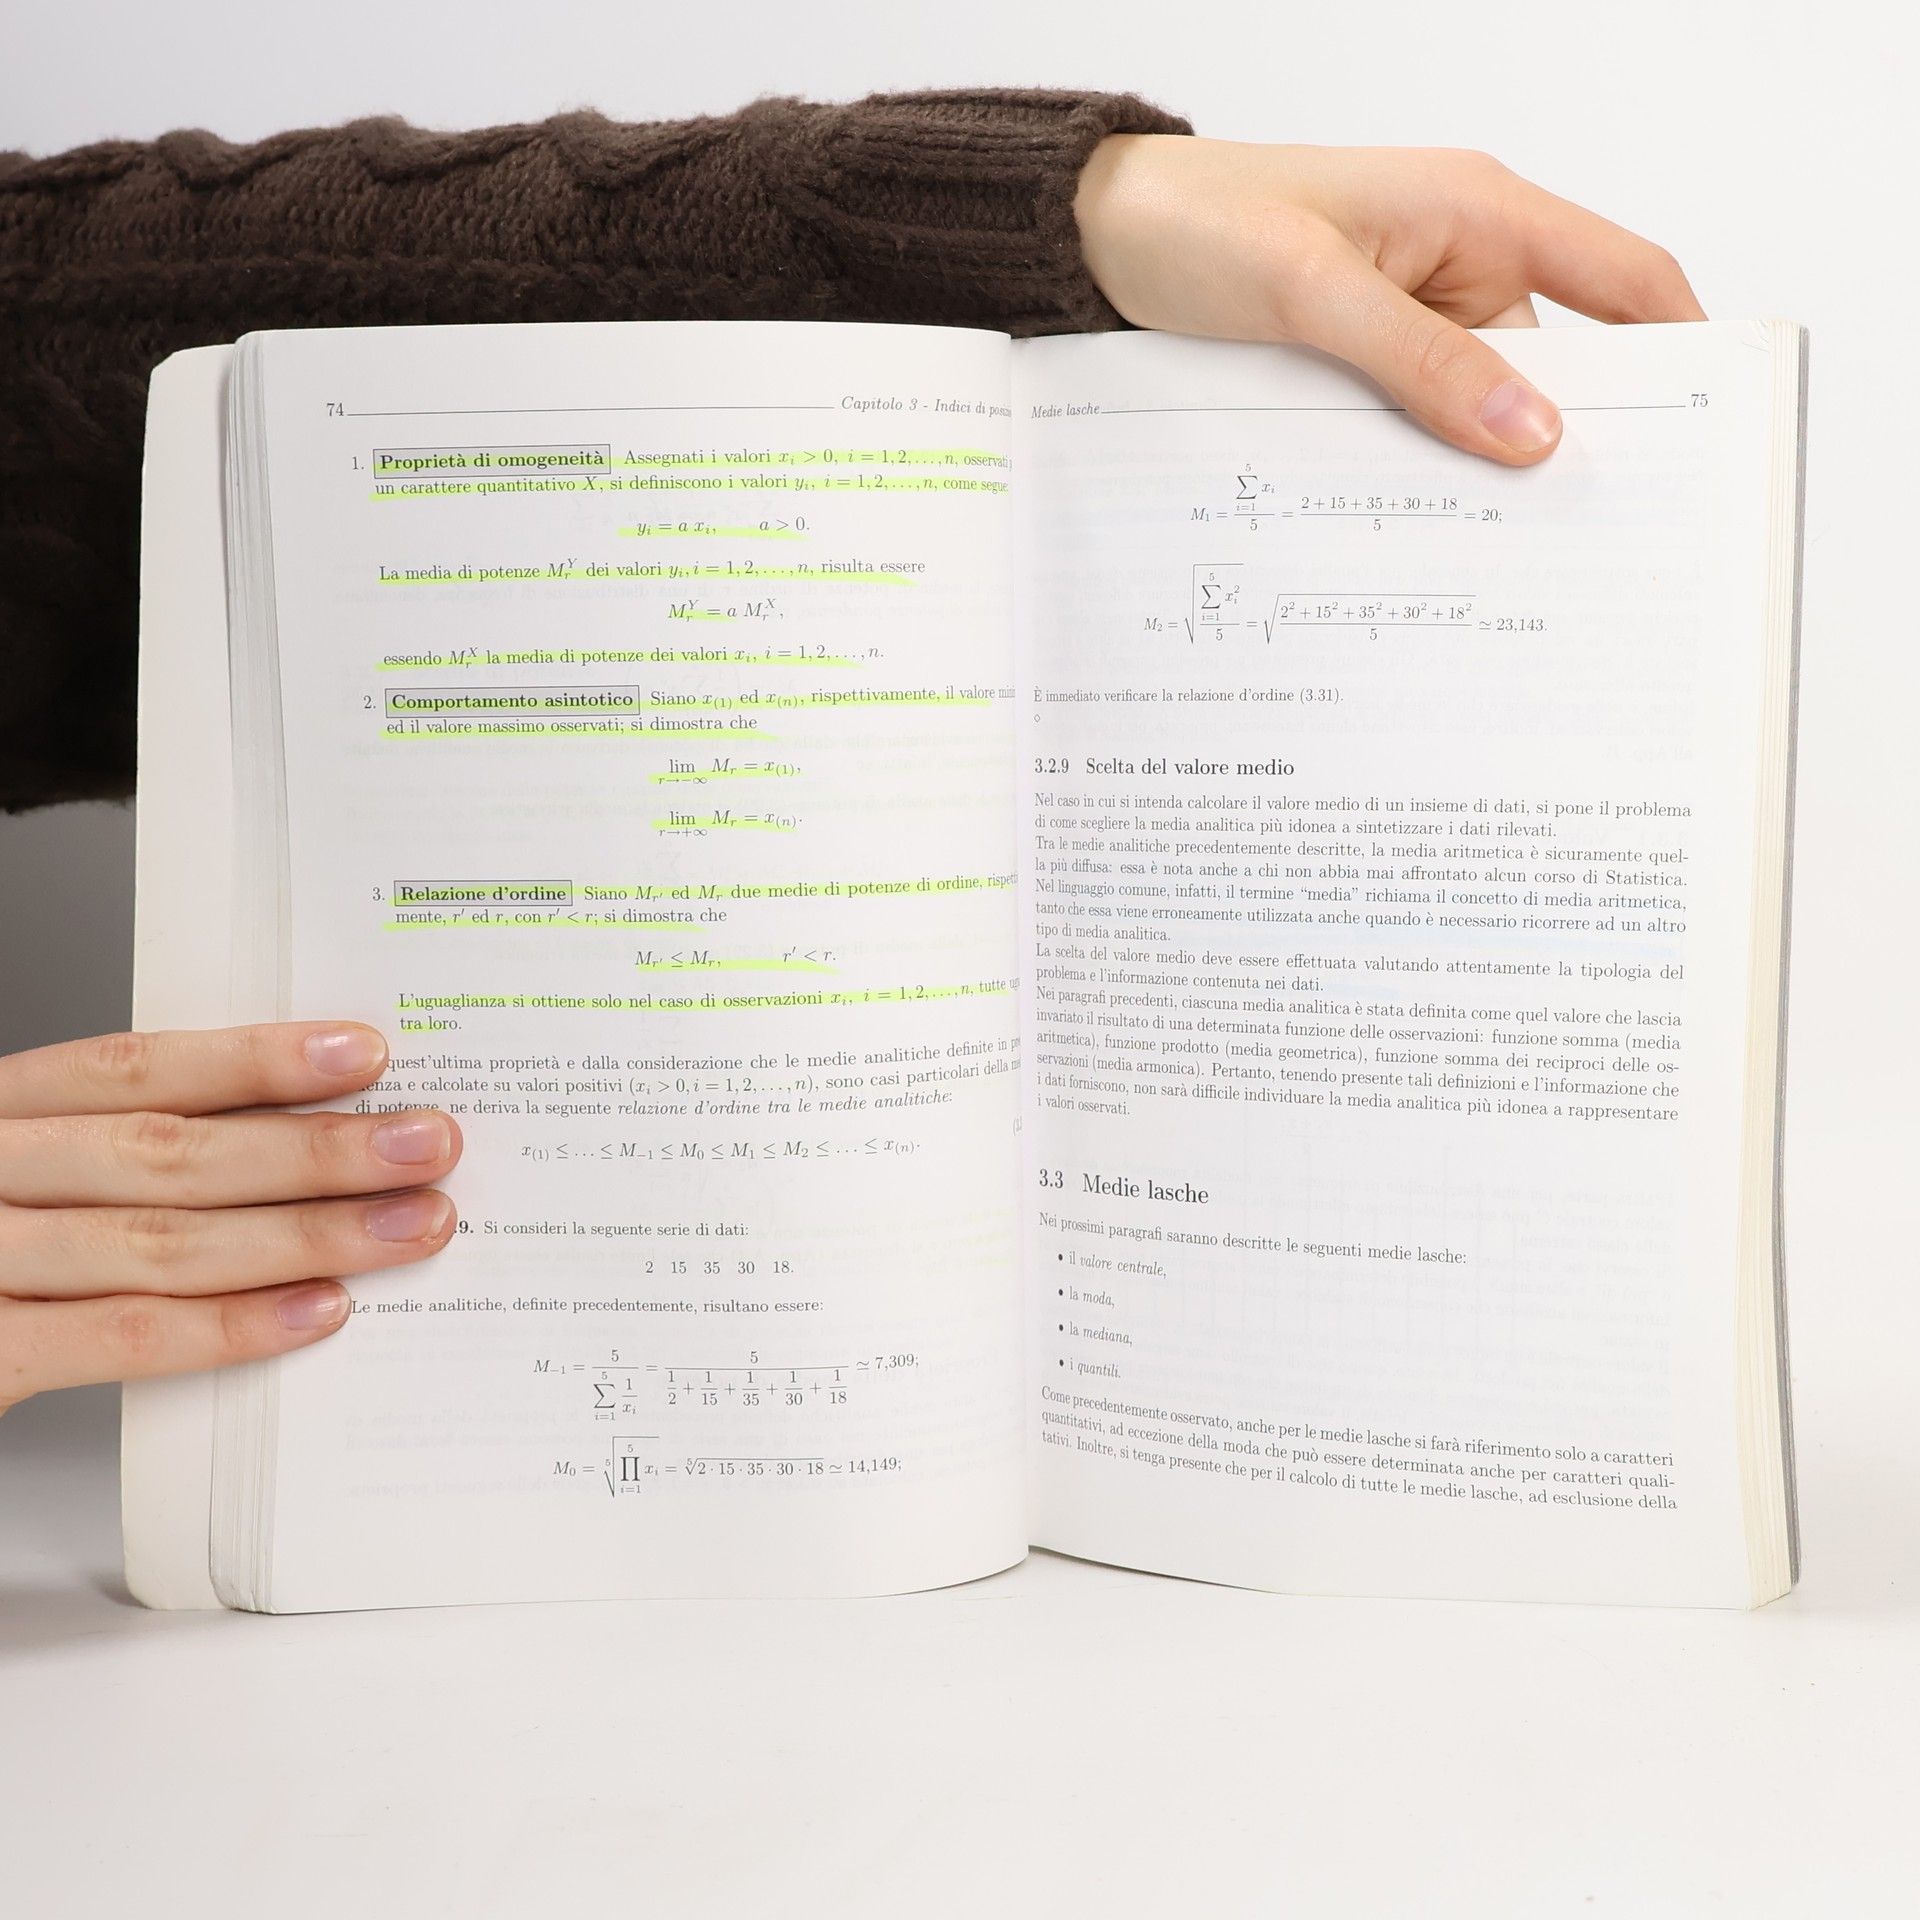 74 Capitolo 3 - Indici di
1. Proprietà di omogeneità Assegnati i valori x_i > 0, i = 1, 2, . . . , n, osservati
un carattere quantitativo X, si definiscono i valori y_i, i = 1, 2, . . . , n, come segue:
y_i = a x_i, a > 0.
La media di potenze M_r^Y dei valori y_i, i = 1, 2, . . . , n, risulta essere
M_r^Y = a M_r^X,
essendo M_r^X la media di potenze dei valori x_i, i = 1, 2, . . . , n.
2. Comportamento asintotico Siano x_(1) ed x_(n), rispettivamente, il valore
ed il valore massimo osservati; si dimostra che
lim_{r→−∞} M_r = x_(1),
lim_{r→+∞} M_r = x_(n).
3. Relazione d'ordine Siano M_r' ed M_r due medie di potenze di ordine,
mente, r' ed r, con r' < r; si dimostra che
M_r' ≤ M_r, r' < r.
L'uguaglianza si ottiene solo nel caso di osservazioni x_i, i = 1, 2, . . . , n, tutte
tra loro.
quest'ultima proprietà e dalla considerazione che le medie analitiche definite in
e calcolate su valori positivi (x_i > 0, i = 1, 2, . . . , n), sono casi particolari della
di potenze, ne deriva la seguente relazione d'ordine tra le medie analitiche:
x_(1) ≤ . . . ≤ M_−1 ≤ M_0 ≤ M_1 ≤ M_2 ≤ . . . ≤ x_(n).
9. Si consideri la seguente serie di dati:
2 15 35 30 18.
Le medie analitiche, definite precedentemente, risultano essere:
M_−1 = 5 / (∑_{i=1}^{5} 1/x_i) = 5 / (1/2 + 1/15 + 1/35 + 1/30 + 1/18) ≃ 7,309;
M_0 = ⁵√(∏_{i=1}^{5} x_i) = ⁵√(2 · 15 · 35 · 30 · 18) ≃ 14,149;
Medie lasche 75
M_1 = (∑_{i=1}^{5} x_i) / 5 = (2 + 15 + 35 + 30 + 18) / 5 = 20;
M_2 = √((∑_{i=1}^{5} x_i²) / 5) = √((2² + 15² + 35² + 30² + 18²) / 5) ≃ 23,143.
È immediato verificare la relazione d'ordine (3.31).
⋄
3.2.9 Scelta del valore medio
Nel caso in cui si intenda calcolare il valore medio di un insieme di dati, si pone il problema
di come scegliere la media analitica più idonea a sintetizzare i dati rilevati.
Tra le medie analitiche precedentemente descritte, la media aritmetica è sicuramente quel-
la più diffusa: essa è nota anche a chi non abbia mai affrontato alcun corso di Statistica.
Nel linguaggio comune, infatti, il termine “media” richiama il concetto di media aritmetica,
tanto che essa viene erroneamente utilizzata anche quando è necessario ricorrere ad un altro
tipo di media analitica.
La scelta del valore medio deve essere effettuata valutando attentamente la tipologia del
problema e l'informazione contenuta nei dati.
Nei paragrafi precedenti, ciascuna media analitica è stata definita come quel valore che lascia
invariato il risultato di una determinata funzione delle osservazioni: funzione somma (media
aritmetica), funzione prodotto (media geometrica), funzione somma dei reciproci delle os-
servazioni (media armonica). Pertanto, tenendo presente tali definizioni e l'informazione che
i dati forniscono, non sarà difficile individuare la media analitica più idonea a rappresentare
i valori osservati.
3.3 Medie lasche
Nei prossimi paragrafi saranno descritte le seguenti medie lasche:
• il valore centrale,
• la moda,
• la mediana,
• i quantili.
Come precedentemente osservato, anche per le medie lasche si farà riferimento solo a caratteri
quantitativi, ad eccezione della moda che può essere determinata anche per caratteri quali-
tativi. Inoltre, si tenga presente che per il calcolo di tutte le medie lasche, ad esclusione della